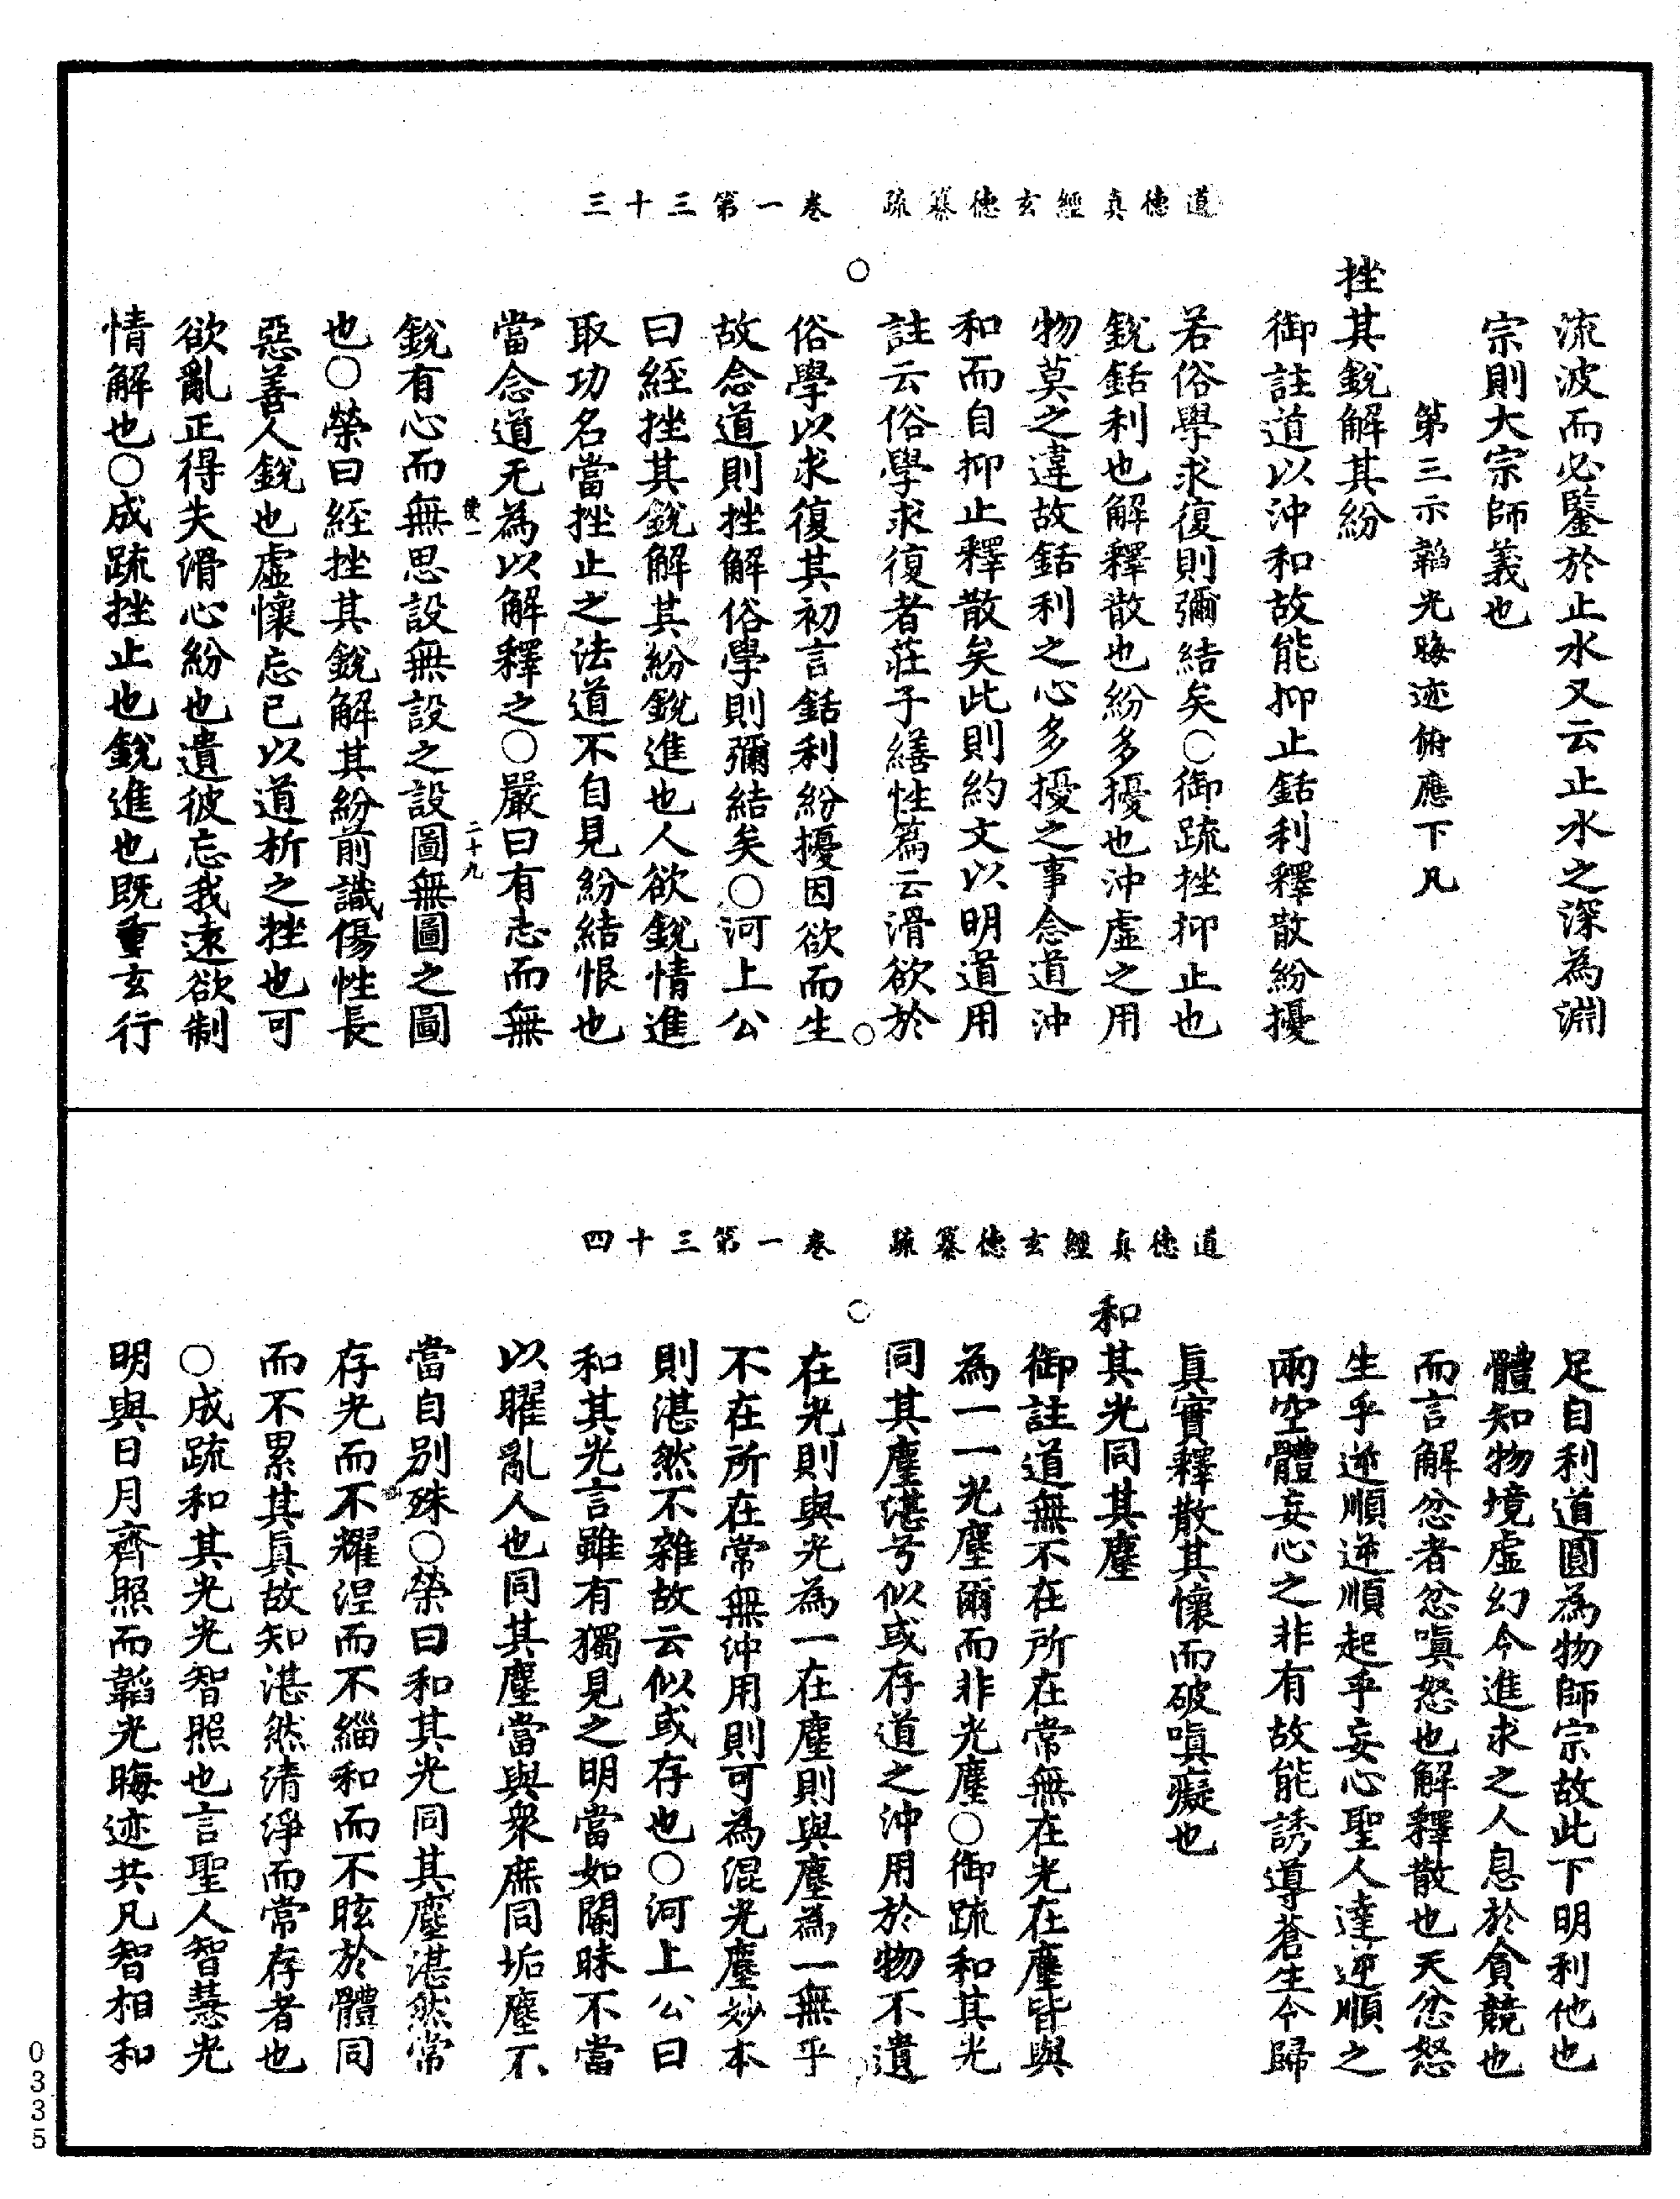 道德真經玄德纂疏　卷一第三十三
流波而必鑒於止水又云止水之深為淵
宗則大宗師義也
第三示韜光晦迹俯應下凡
挫其銳解其紛
御註道以沖和故能抑止銛利釋散紛擾
若俗學求復則彌結矣○御疏挫抑止也
銳銛利也解釋散也紛多擾也沖虛之用
物莫之違故銛利之心多擾之事念道沖
和而自抑止釋散矣此則約文以明道用
註云俗學求復者莊子繕性篇云滑欲於
俗學以求復其初言銛利紛擾因欲而生
故念道則挫解俗學則彌結矣○河上公
曰經挫其銳解其紛銳進也人欲銳情進
取功名當挫止之法道不自見紛結恨也
當念道无為以解釋之○嚴曰有志而無
使一　二十九
銳有心而無思設無設之設圖無圖之圖
也○榮曰經挫其銳解其紛前識傷性長
惡善人銳也虛懷忘已以道析之挫也可
欲亂正得失滑心紛也遺彼忘我遠欲制
情解也○成疏挫止也銳進也既重玄行
道德真經玄德纂疏　卷一第三十四
足自利道圓為物師宗故此下明利他也
體知物境虛幻令進求之人息於貪競也
而言解忿者忿嗔怒也解釋散也夭忿怒
生乎逆順逆順起乎妄心聖人達逆順之
兩空體妄心之非有故能誘導蒼生令歸
眞實釋散其懷而破嗔癡也
和其光同其塵
御註道無不在所在常無在光在塵皆與
為一一光塵爾而非光塵○御疏和其光
同其塵湛兮似或存道之沖用於物不遺
在光則與光為一在塵則與塵為一無乎
不在所在常無沖用則可為混光塵妙本
則湛然不雜故云似或存也○河上公曰
和其光言雖有獨見之明當如闇昧不當
以曜亂人也同其塵當與衆庶同垢塵不
當自別殊○榮曰和其光同其塵湛然常
存光而不耀涅而不緇和而不眩於體同
而不累其眞故知湛然清淨而常存者也
○成疏和其光光智照也言聖人智慧光
明與日月齊照而韜光晦迹共凡智相和
0335